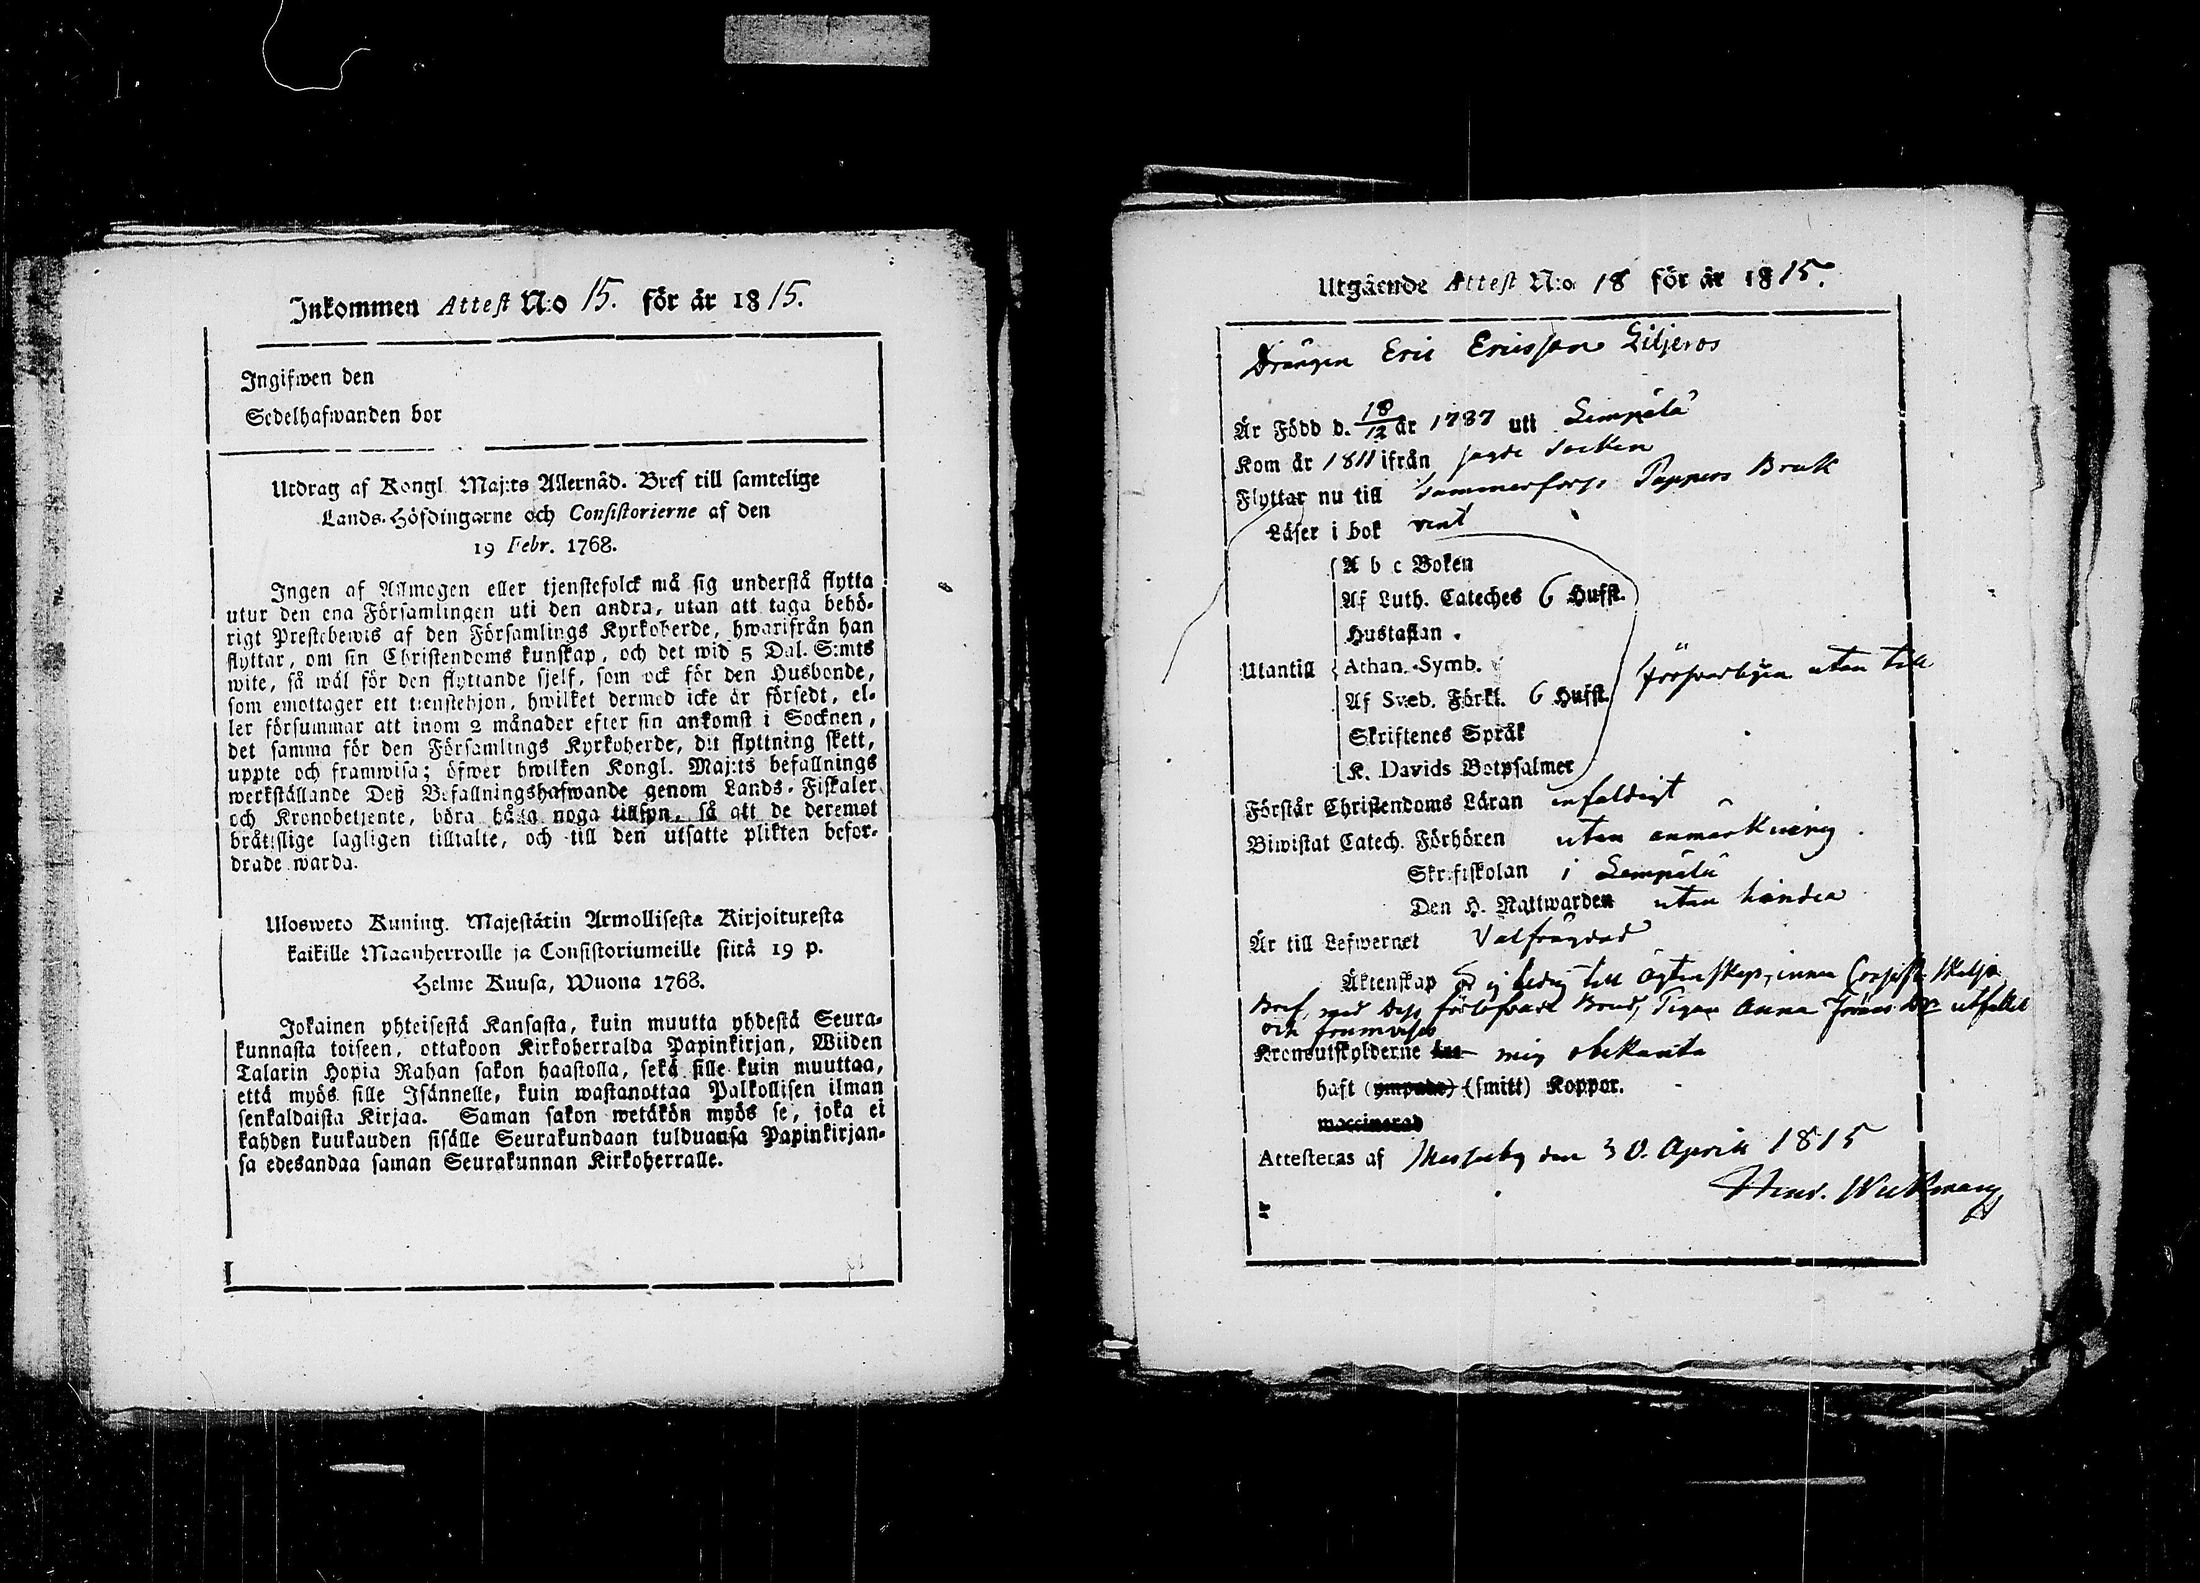 Inkommen Attest N:o 15. för år 1815.
Ingifwen den
Sedelhafwanden bor
Utdrag af Kongl. Maj:ts Allernåd. Bref till samtelige
Lands-Höfdingarne och Consistorierne af den
19 Febr. 1768.
Ingen af Allmogen eller tjenstefolck må sig understå flytta
utur den ena Församlingen uti den andra, utan att taga behö-
rigt Prestebewis af den Församlings Kyrkoherde, hwarifrån han
flyttar, om sin Christendoms kunskap, och det wid 5 Dal. S:mts
wite, så wäl för den flyttande sjelf, som ock för den Husbonde,
som emottager ett tienstehjon, hwilket dermed icke är försedt, el-
ler försummar att inom 2 månader efter sin ankomst i Socknen,
det samma för den Församlings Kyrkoherde, dit flyttning skett,
uppte och framwisa; öfwer hwilken Kongl. Maj:ts befallnings
werkställande Deß Befallningshafwande genom Lands-Fiskaler
och Kronobetjente, böra hålla noga tillsyn, så att de deremot
bråtslige lagligen tilltalte, och till den utsatte plikten befor-
drade warda.
Uloswero Kuning. Majestätin Armollisesta Kirjoituresta
kaikille Maanherroille ja Consistoriumeille siitä 19 p.
Helme Kuusa, Wuona 1768.
Jokainen yhteisestä Kansasta, kuin muutta yhdestä Seura-
kunnasta toiseen, ottakoon Kirkoherralda Papinkirjan, Wiiden
Talarin Hopia Rahan sakon haastolla, sekä sille kuin muuttaa,
että myös sille Isännelle, kuin wastanottaa Palkollisen ilman
senkaldaista Kirjaa. Saman sakon wetäkön myös se, joka ei
kahden kuukauden sisälle Seurakundaan tulduansa Papinkirjan-
sa edesandaa saman Seurakunnan Kirkoherralle.
Utgående Attest N:o 18 för år 1815.
Drängen Eric Ericsson Liljeros
Är Född d. 18/12 år 1787 uti Lempälä
Kom år 1811 ifrån sagde Socken
Flyttar nu till Tammerfors Pappers Bruk
Läser i bok rent
A b c Boken
Af Luth. Cateches 6 Hufst.
Hustaflan.
Utantill Athan. Symb.
försvarligen utan till
Af Sveb. Förkl. 6 Hufst.
Skriftenes Språk
K. Davids Botpsalmer
Förstår Christendoms Läran enfaldigt
Biwistat Catech. Förhören utan anmärkning.
Skriftskolan i Lempälä
Den H. Nattwarden utan hinder
Är till Lefwernet Välfrägdad
Äktenskap är ej ledig till ägtenskap, innan Consist. skiljo
Bref, med dess förlofvade Brud, Pigan Anna dr utfallit
och framvises
Kronoutskylderne mig obekanta
haft (ympade) (smitt) Koppor.
waccinerad
Attesteras af Messuby den 30. Aprill 1815
Henr. Wickman